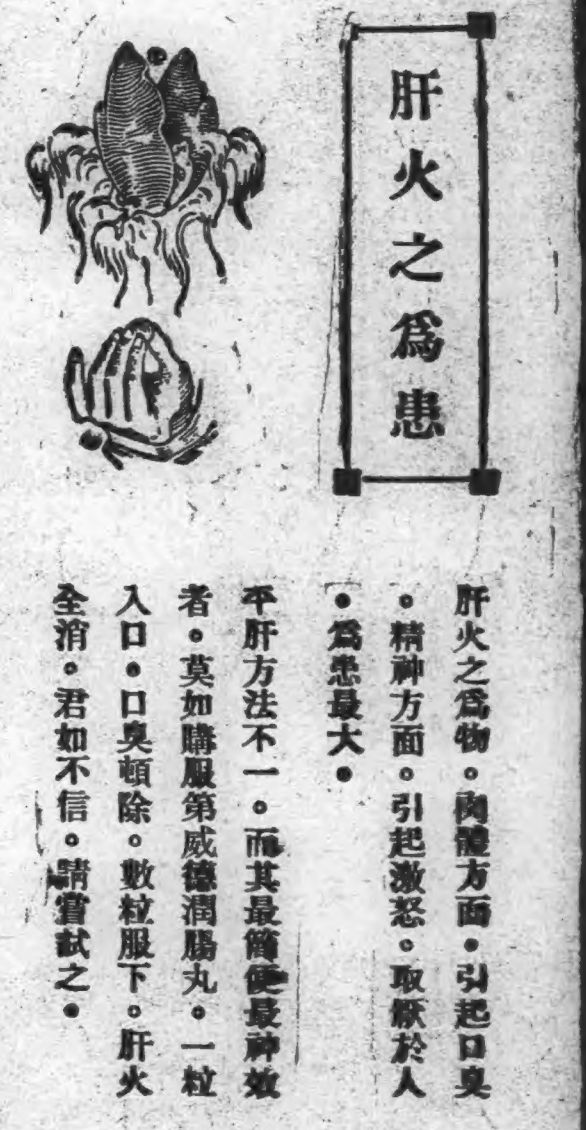 肝火之爲患
肝火之爲物。肉體方面。引起口臭
。精神方面。引起激怒。取厭於人
。爲患最大。
平肝方法不一。而其最簡便最神效
者。莫如購服第威德潤腸丸。一粒
入口。口臭頓除。數粒服下。肝火
全消。君如不信。請嘗試之。